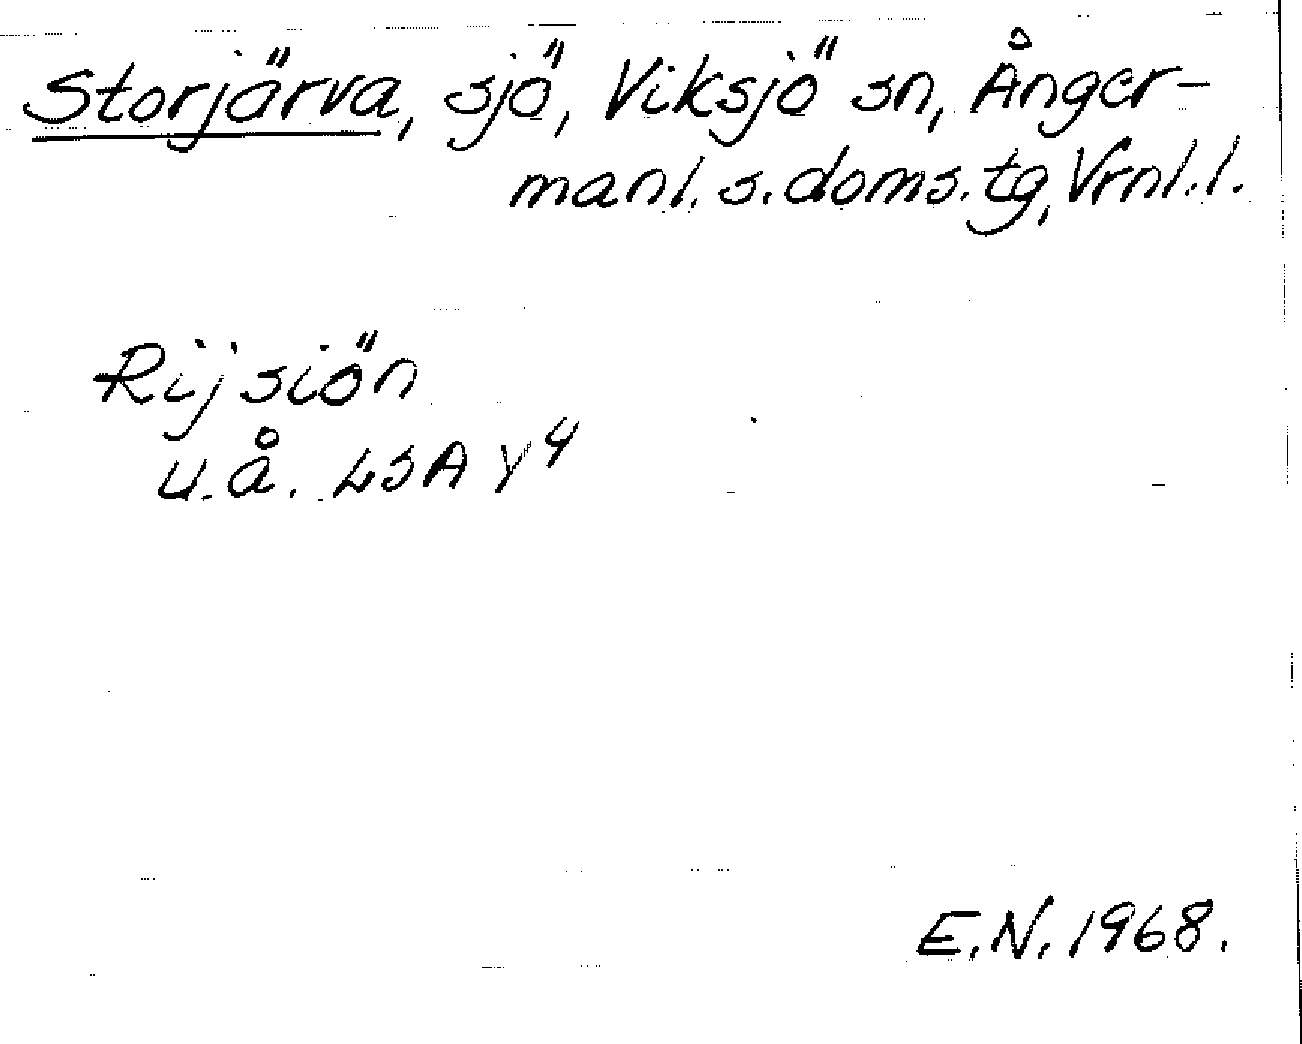 Storjärva, sjö, Viksjö sn, Ånger-
manl. s. doms. tg, Vrnl. l.
Rijsiön
u.å. LSA Y4
E.N. 1968.